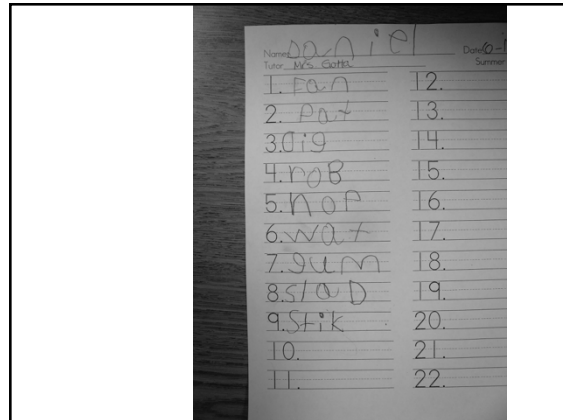 Name: Daniel Date 10-1
Tutor Mrs Gotta Summer
1. Fan
2. Pat
3. Dig
4. roB
5. hop
6. wat
7. gum
8. slaD
9. Stik
10.
11.
12.
13.
14.
15.
16.
17.
18.
19.
20.
21.
22.